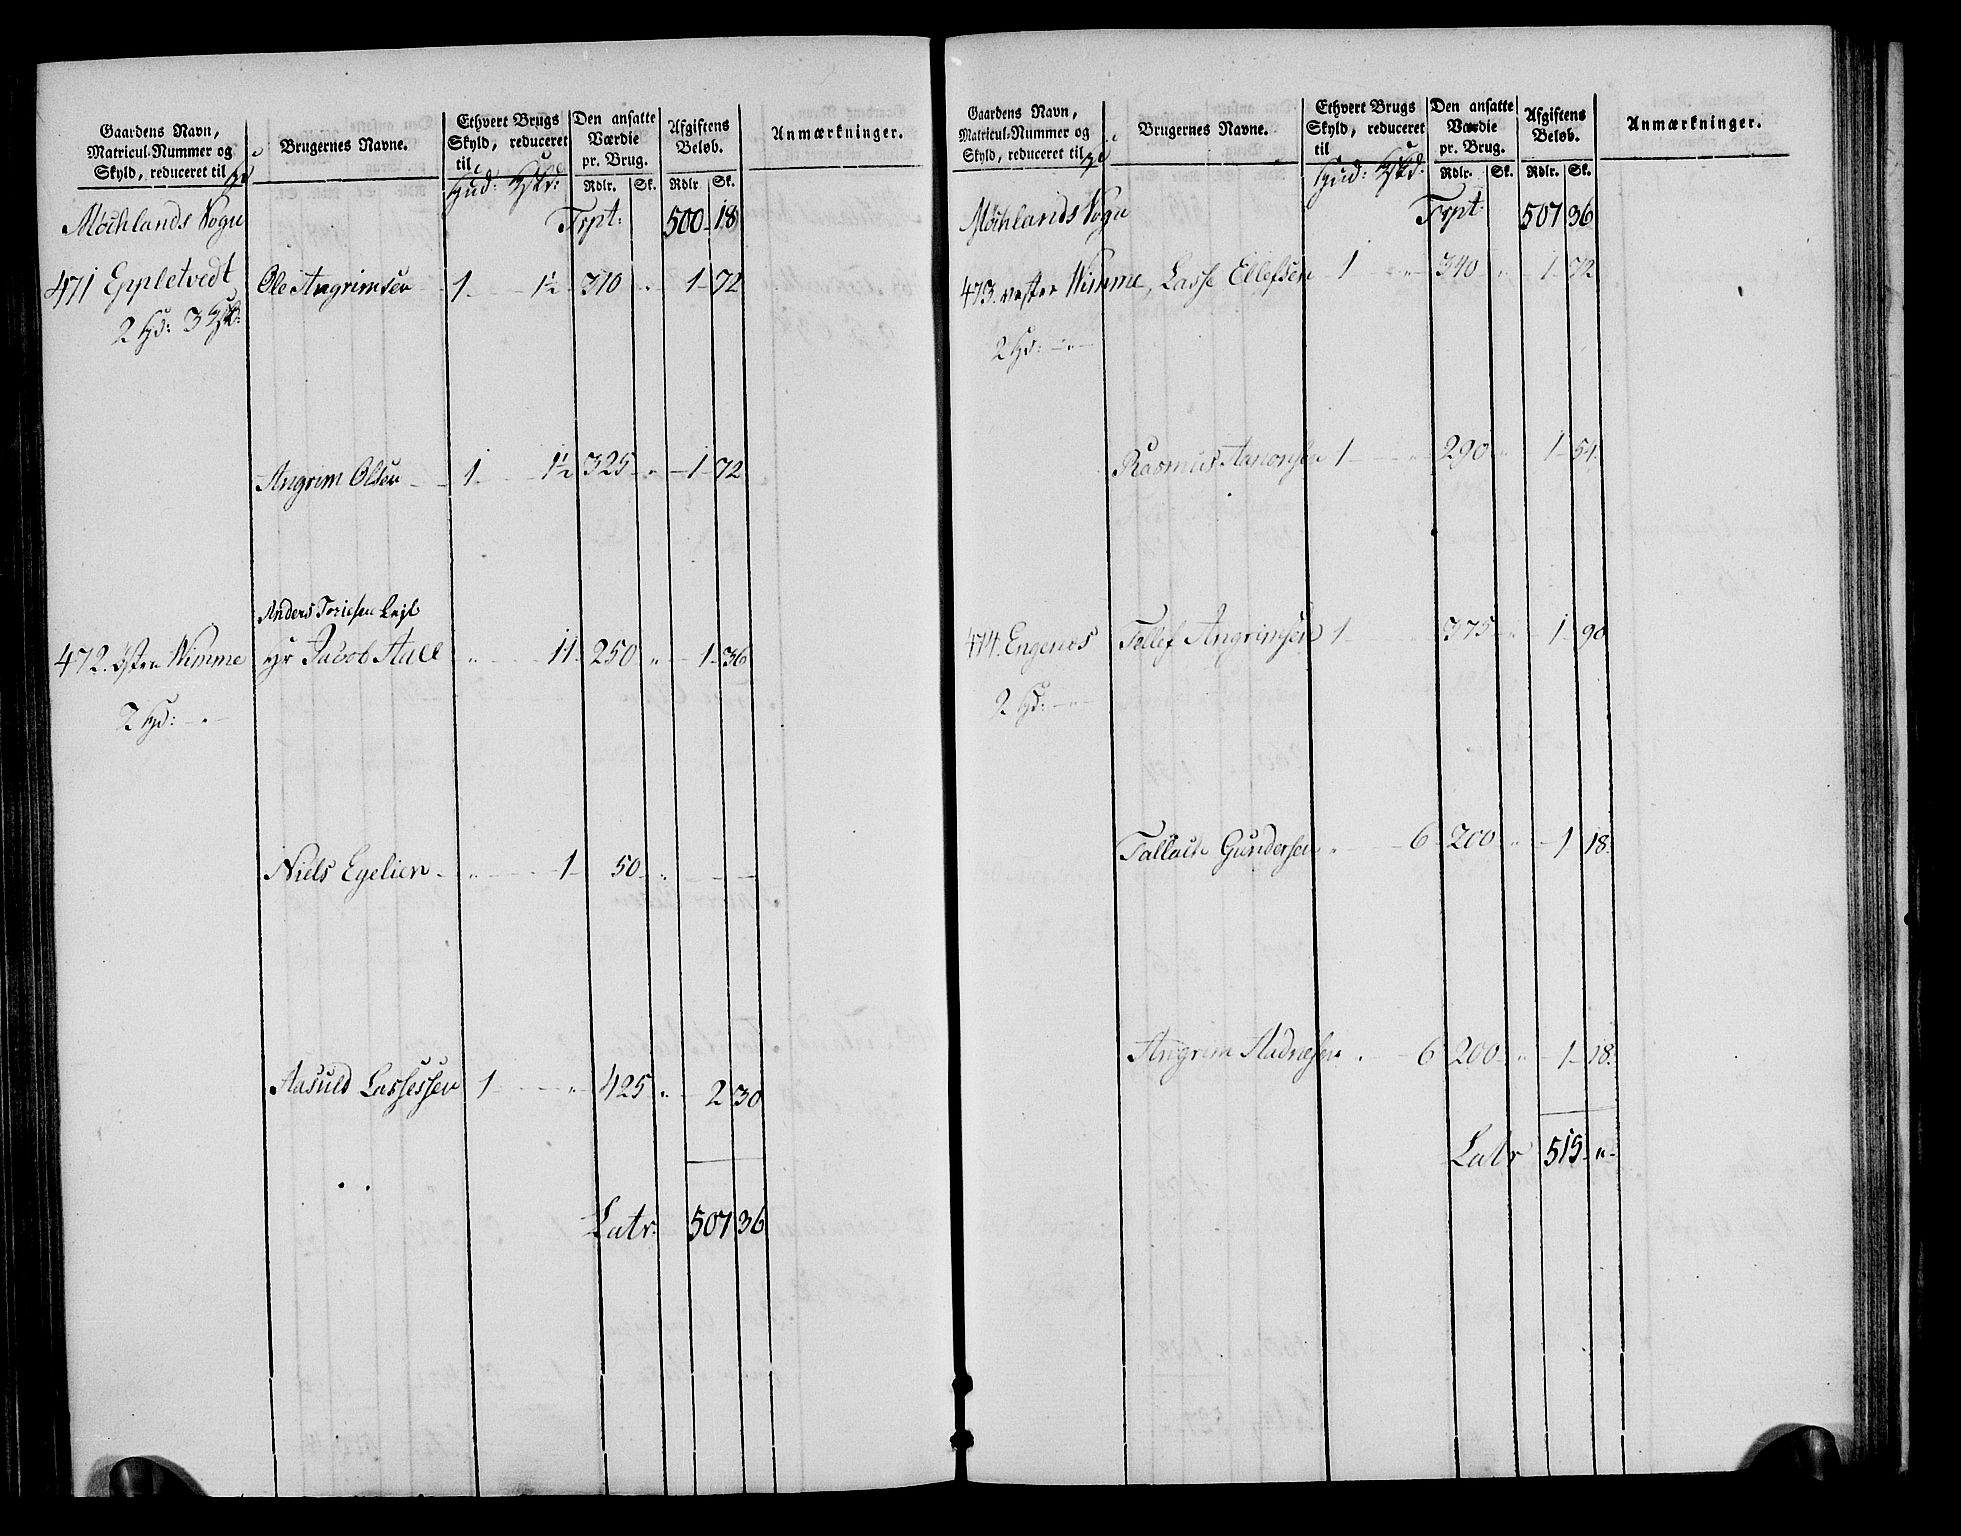 Gaardens Navn, Matricul-Nummer og Skyld, reduceret til | Brugernes Navne. | Ethvert Brugs Skyld, reduceret til Hud: | Den ansatte Værdie pr. Brug. Rdlr. Sk. | Afgiftens Beløb. Rdlr. Sk. | Anmærkninger.
Møchlands Sogn Trpt: 500 18
471 Eppletvedt Ole Angrimsen 1 1½ 310 " 1 72
2 Hd: 3
Angrim Olsen 1 1½ 325 " 1 72
Anders Toriesen Lejl
472. Østen Nimme Jacob Aall " 11 250 " 1 36
2 Hd: "
Niels Egelien " 1 50 "
Aasuld Lassessen 1 " 425 " 2 30
Latr: 507 36
Gaardens Navn, Matricul-Nummer og Skyld, reduceret til | Brugernes Navne. | Ethvert Brugs Skyld, reduceret til Hud: | Den ansatte Værdie pr. Brug. Rdlr. Sk. | Afgiftens Beløb. Rdlr. Sk. | Anmærkninger.
Møchlands Sogn Trpt: 507 36
473. Vester Nimme, Lasse Ellefsen 1 " 340 " 1 72
2 Hd: "
Rasmus Aanonsen 1 " 290 " 1 54
474. Engenes Tellef Angrimsen 1 375 " 1 90
2 Hd: "
Tallach Gundersen " 6 200 " 1 18
Angrim Aadnesen " 6 200 " 1 18
Latr 515 "